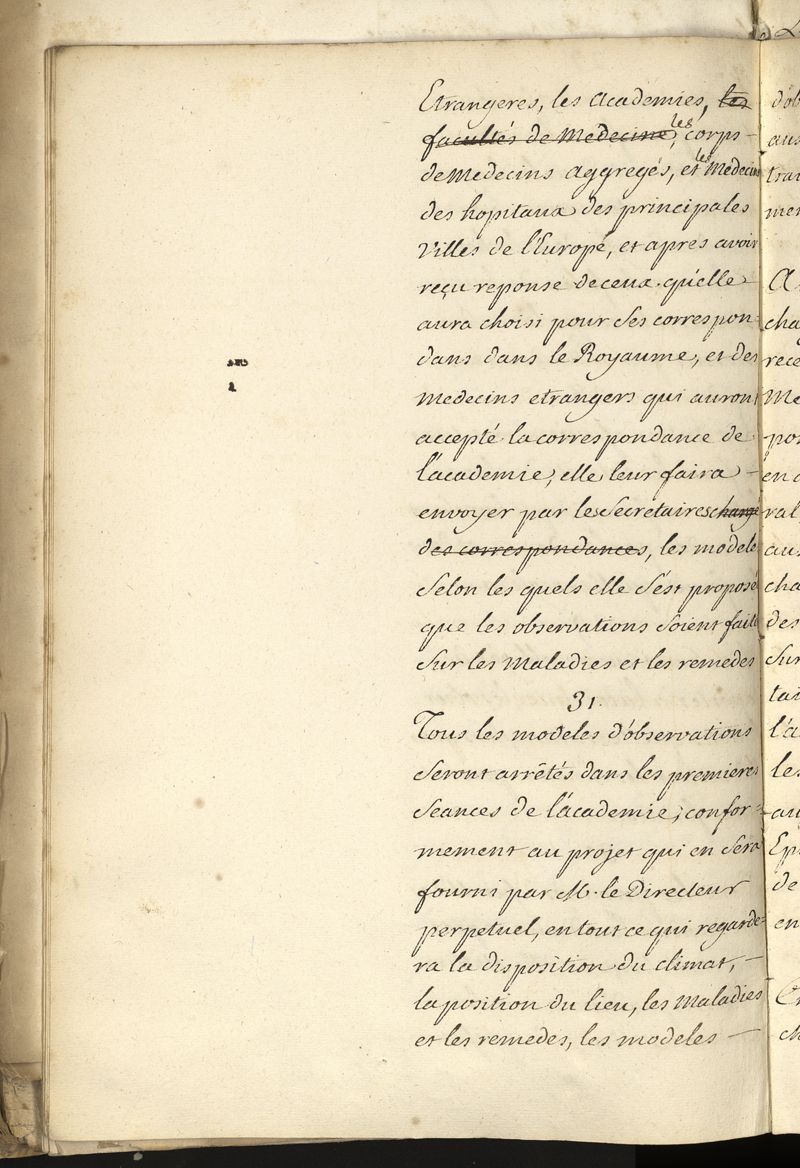 Etrangeres, les academies, les
facultés de Medecine, les corps
de Medecins aggregés, et les Medecins
des hopitaux des principales
Villes de l'Europé, et apres avoir
reçu reponse de ceux qu'elle
aura choisi pour ses correspon-
dans dans le Royaume, et des
Medecins etrangers qui auront
accepté la correspondance de
l'academie, elle leur faira
envoyer par les Secretaires chargé
des correspondances, les modele
selon les quels elle s'est proposé
que les observations soient faite
sur les Maladies et les remedes
31.
Tous les modeles d'observations
seront arrêtés dans les premieres
seances de l'academie, confor-
mement au projet qui en sera
fourni par M. le Directeur
perpetuel, en tout ce qui regarde-
ra la disposition du climat,
la position du lieu, les Maladies
et les remedes, les modeles